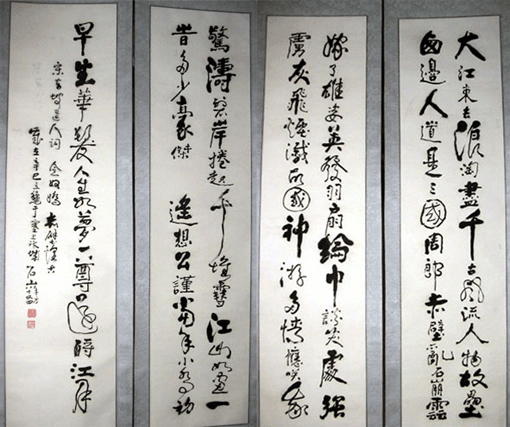 大江東去浪淘盡千古風流人物故壘
西邊人道是三國周郎赤壁亂石崩雲
嫁了雄姿英發羽扇綸巾談笑處強
虜灰飛煙滅故國神游多情應笑我
驚濤裂岸捲起千堆雪江山如畫一
旹多少豪傑遙想公謹當年小喬初
早生華髮人生如夢一尊還酹江月
宋東坡道人詞 念奴嬌 赤壁懷古
歲在辛巳